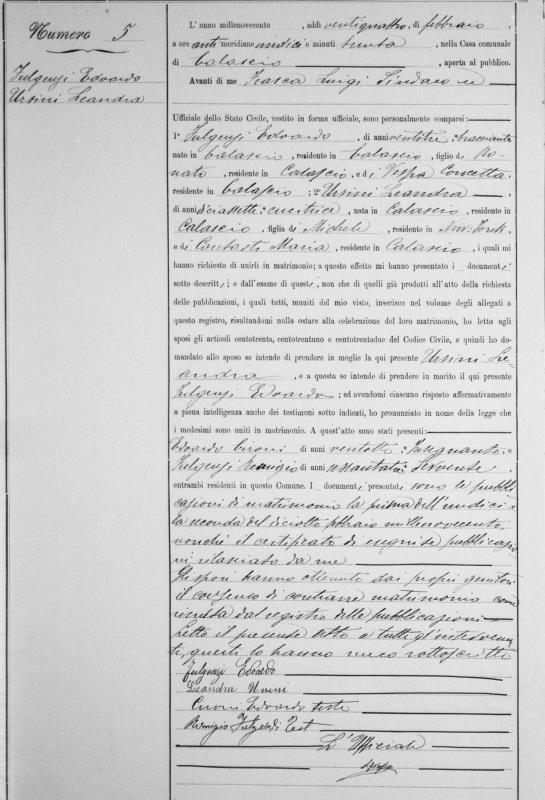 Numero 5
Fulgenzi Edoardo
Ursini Leandra
L' anno millenovecento, addì ventiquattro, di febbraio,
a ore anti meridiane undici e minuti trenta, nella Casa comunale
di Calascio, aperta al pubblico.
Avanti di me Frasca Luigi Sindaco ed
Uffiziale dello Stato Civile, vestito in forma ufficiale, sono personalmente comparsi:
1° Fulgenzi Edoardo, di anni ventitre
nato in Calascio, residente in Calascio, figlio di Do-
nato, residente in Calascio, e di Vespa Concetta
residente in Calascio; 2° Ursini Leandra,
di anni diciassette: cucitrice, nata in Calascio, residente in
Calascio, figlia di Michele, residente in New-Yorck
e di Maria, residente in Calascio, i quali mi
hanno richiesto di unirli in matrimonio; a questo effetto mi hanno presentato i documenti
sotto descritti; e dall'esame di questi, non che di quelli già prodotti all'atto della richiesta
delle pubblicazioni, i quali tutti, muniti del mio visto, inserisco nel volume degli allegati a
questo registro, risultandomi nulla ostare alla celebrazione del loro matrimonio, ho letto agli
sposi gli articoli centotrenta, centotrentuno e centotrentadue del Codice Civile, e quindi ho do-
mandato allo sposo se intende di prendere in moglie la qui presente Ursini Le=
andra, e a questa se intende di prendere in marito il qui presente
Fulgenzi Edoardo; ed avendomi ciascuno risposto affermativamente
a piena intelligenza anche dei testimoni sotto indicati, ho pronunziato in nome della legge che
i medesimi sono uniti in matrimonio. A quest'atto sono stati presenti:
Edoardo Cironi di anni ventotto: Insegnante
Fulgenzi Remigio di anni sessantatre: Servente,
entrambi residenti in questo Comune. I documenti presentati sono le pubbli
cazioni di matrimonio la prima dell'undici e
la seconda del diciotto febbraio millenovecento,
nonchè il certificato di eseguite pubblicazio
ni rilasciato da me
Gli sposi hanno ottenuto dai propri genitori
il consenso di contrarre matrimonio come
risulta dal registro delle pubblicazioni
Letto il presente atto a tutti gl'interve
ti, questi lo hanno meco sottoscritto
Fulgenzi Edoardo
Leandra Ursini
Cironi Edoardo teste
Remigio Fulgenzi Test
L' Ufficiale